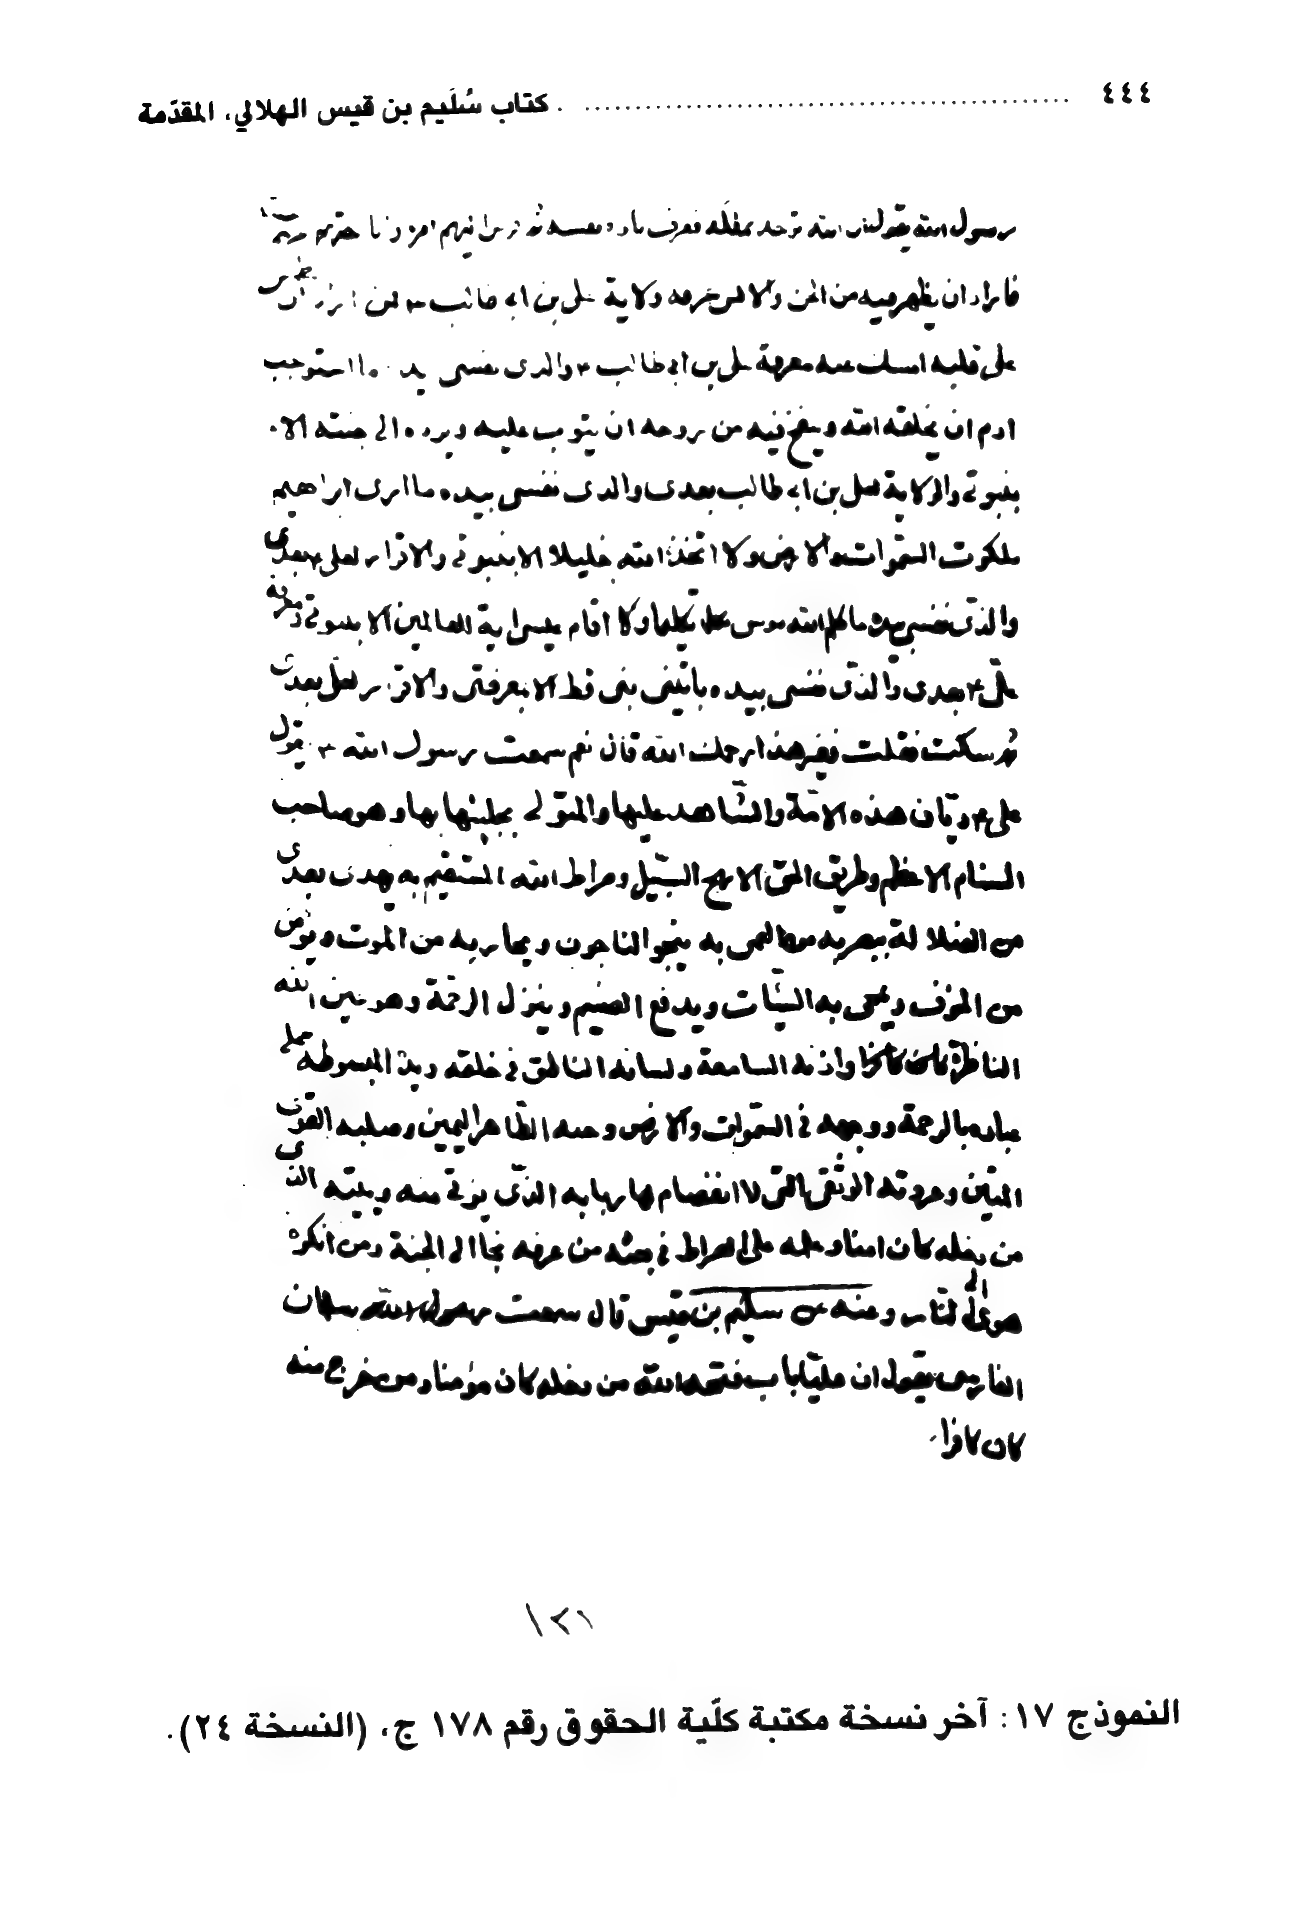 ٤٤٤ ........ كتاب سُلَيم بن قيس الهلالي، المقدّمة
رسول الله يقول ان الله توحد بملكه فعرف
فاراد ان يطهر قلبه من الجن والانس عرفه ولاية علي بن ابي طالب ٤ ومن اراد ان يطمس
على قلبه امسك عنه معرفة علي بن ابي طالب ٤ والذى نفسى بيده ما استوجب
ادم ان يخلقه الله وينفخ فيه من روحه ان يتوب عليه ويرده الى جنته الا
بنبوتى والولاية لعلى بن ابى طالب بعدى والذى نفسى بيده ما ارى ابراهيم
ملكوت السموات والارض ولا اتخذ الله خليلا الا بنبوتى والاقرار لعلى ٤ بعدى
والذى نفسى بيده ما كلم الله موسى تكليما ولا اقام عيسى اية للعالمين الا بنبوتى ومعرفة
على ٤ بعدى والذى نفسى بيده ما تنبى نبى قط الا بمعرفتى والاقرار لعلى بعدى
ثم سكت فقلت فغير هذا رحمك الله قال نعم سمعت رسول الله ٣ يقول
على ٤ ديان هذه الامة والشاهد عليها والمتولى بحليتها بها وهو صاحب
السنام الاعظم وطريق الحق الابهج السبيل وصراط الله المستقيم به يهدى بعدى
من الضلالة يبصر به من العمى به ينجو الناجون ويجار به من الموت ويؤمن
من الخوف ويمحى به السيئات ويدفع الضيم وينزل الرحمة وهو عين الله
الناظرة واذنه السامعة ولسانه الناطق في خلقه ويده المبسوطة على
عباده بالرحمة ووجهه في السموات والارض وجنبه الظاهر اليمين وحبله القوى
المتين وعروته الوثقى التى لا انفصام لها بابه الذى يؤتى منه وبيته الذى
من دخله كان امنا وعلمه على الصراط في بعثه من عرفه نجا الى الجنة ومن انكره
هوى الى النار وعنه عن سليم بن قيس قال سمعت سلمان
الفارسى يقول ان عليا باب فتحه الله من دخله كان مؤمنا ومن خرج منه
كان كافرا
١٢١
النموذج ١٧: آخر نسخة مكتبة كلّية الحقوق رقم ١٧٨ ج، (النسخة ٢٤).